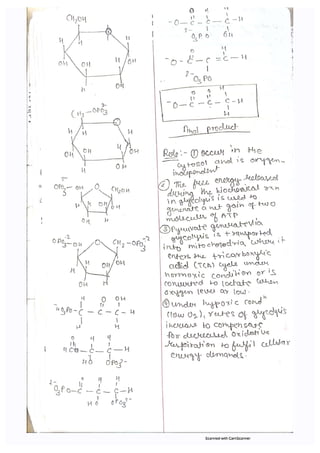 CH₂OH
O
H
OH
OH
H
OH
CH₂-OPO₃²⁻
O
H
OH
OH
H
OH
OPO₃²⁻
O
CH₂OH
OH
OH
H
OPO₃²⁻
O
CH₂-OPO₃²⁻
H
OH
OH
H
H O OH
²⁻O₃PO-C-C-C-H
H
O H H
C-C-C-H
HO OPO₃²⁻
H
²⁻O₃PO-C-C-C-H
HO OPO₃²⁻
O H H
⁻O-C-C-C-H
²⁻O₃PO OH
O H
⁻O-C-C=C-H
²⁻O₃PO
O O H
⁻O-C-C-C-H
H
Final product
Role:- ① occur in the
cytosol and is oxygen-
independent
② The free energy released
during the biochemical rxn
in glycolysis is used to
generate a net gain of two
molecules of ATP
③ Pyruvate generated via
glycolysis is transported
into mitochondria, where it
enters the tricarboxylic
acid (TCA) cycle under
normoxic condition or is
converted to lactate when
oxygen level are low.
④ under hypoxic condⁿ
(low O₂), rates of glycolysis
increase to compensate
for decreased oxidative
respiration to fulfil cellular
energy demands.
Scanned with CamScanner